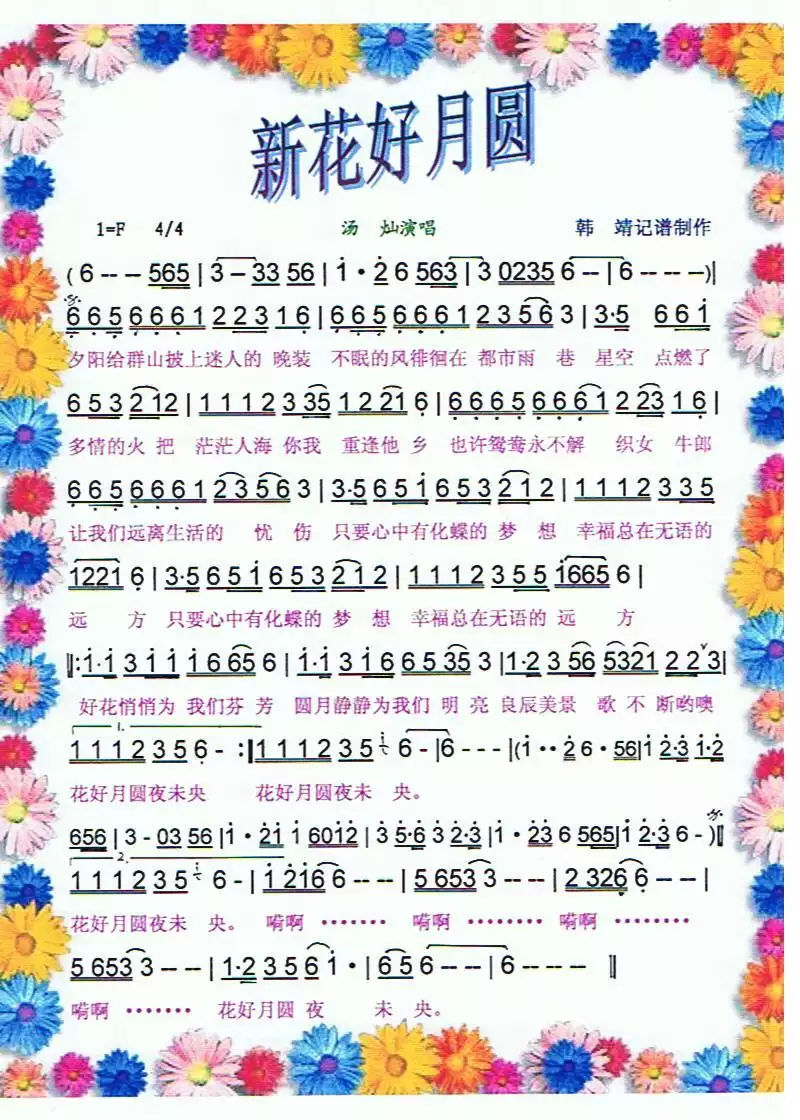 新花好月圆
1=F 4/4 汤 灿演唱 韩 靖记谱制作
( 6 -- - 565 | 3 - 33 56 | 1 · 2 6 563 | 3 0235 6 -- | 6 -- -- )|
6 6 5 6 6 6 1 2 2 3 1 6 | 6 6 5 6 6 6 1 2 3 5 6 3 | 3·5 6 6 1
夕阳给群山披上迷人的 晚装 不眠的风徘徊在 都市雨 巷 星空 点燃了
6 5 3 2 1 2 | 1 1 1 2 3 35 1 2 21 6 | 6 6 6 5 6 6 6 1 2 23 1 6 |
多情的火 把 茫茫人海 你我 重逢他 乡 也许鸳鸯永不解 织女 牛郎
6 6 5 6 6 6 1 2 3 5 6 3 | 3·5 6 5 1 6 5 3 2 1 2 | 1 1 1 2 3 3 5
让我们远离生活的 忧 伤 只要心中有化蝶的 梦 想 幸福总在无语的
1221 6 | 3·5 6 5 1 6 5 3 2 1 2 | 1 1 1 2 3 5 5 1665 6 |
远 方 只要心中有化蝶的 梦 想 幸福总在无语的 远 方
‖: 1·1 3 1 1 1 6 65 6 | 1·1 3 1 6 6 5 35 3 | 1·2 3 56 5321 2 2 3 |
好花悄悄为 我们芬 芳 圆月静静为我们 明 亮 良辰美景 歌 不 断哟噢
1.
1 1 1 2 3 5 6 - :‖ 1 1 1 2 3 5 i 6 - | 6 - - - |( 1 ·· 2 6 · 56 | 1 2·3 1·2
花好月圆夜未央 花好月圆夜未 央。
656 | 3 - 03 56 | 1 · 21 1 6012 | 3 5·6 3 2·3 | 1 · 23 6 565 | 1 2·3 6 - )‖
2.
1 1 1 2 3 5 i 6 - | 1 216 6 -- - | 5 653 3 -- - | 2 326 6 -- -- |
花好月圆夜未 央。 嗬啊 ······· 嗬啊 ········ 嗬啊 ········
5 653 3 -- - | 1·2 3 5 6 1 · | 6 5 6 -- -- | 6 -- -- -- ‖
嗬啊 ······· 花好月圆 夜 未 央。